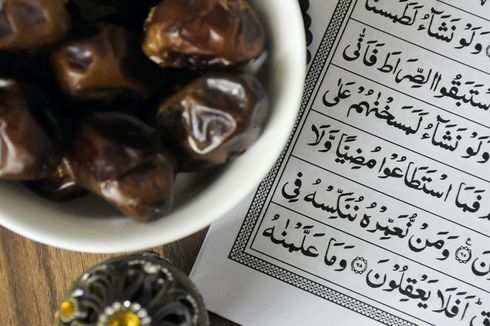 وَلَوْ نَشَآءُ لَطَمَسْنَا
سْتَبَقُوا الصِّرَاطَ فَاَنّٰى
وَلَوْ نَشَآءُ لَمَسَخْنٰهُمْ عَلٰى
فَمَا اسْتَطَاعُوْا مُضِيًّا وَّلَا
وَمَنْ نُّعَمِّرْهُ نُنَكِّسْهُ فِى
اَفَلَا يَعْقِلُوْنَ ۝٦٨ وَمَا عَلَّمْنٰهُ